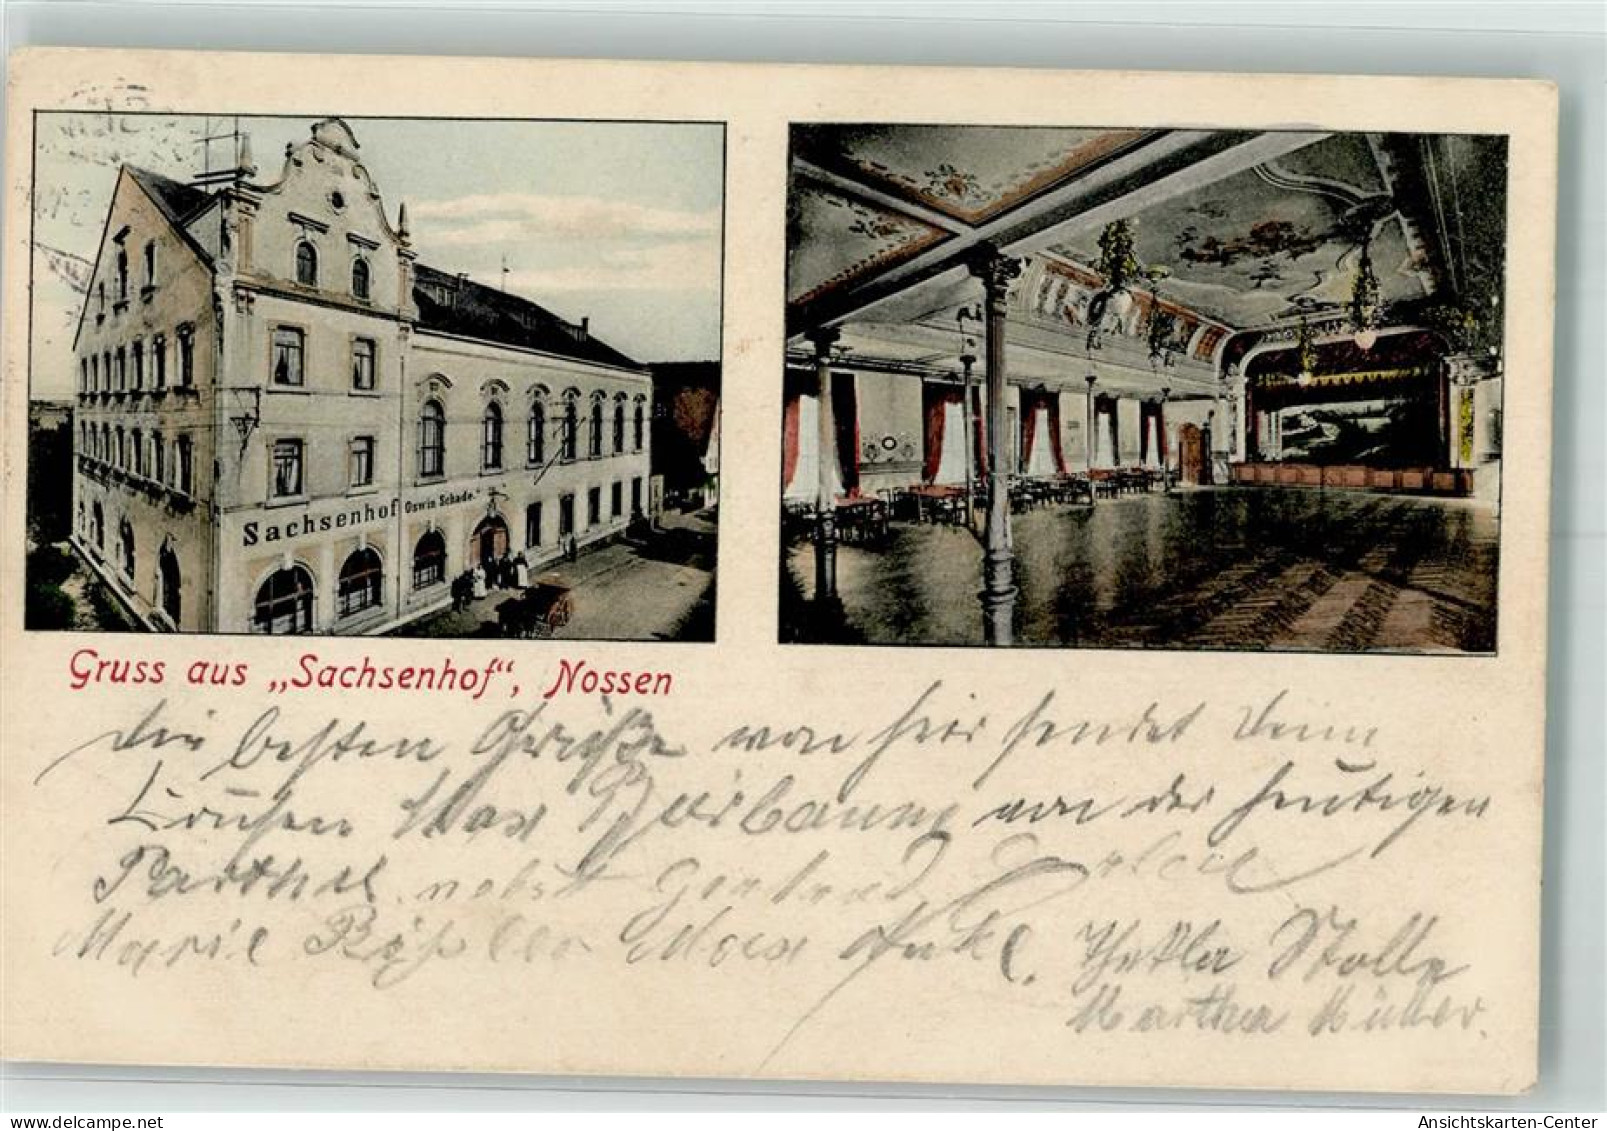 Sachsenhof Oswin Schade.
Gruss aus „Sachsenhof“, Nossen
die besten Grüße von hier sendet Deine
Max von der heutigen
Parthie nebst Gertrud
Marie Max Thekla Stolle
Martha Müller.
Ansichtskarten-Center